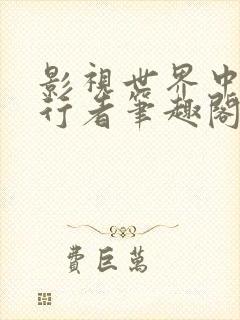 影視世界中
行者筆趣閣
費巨萬